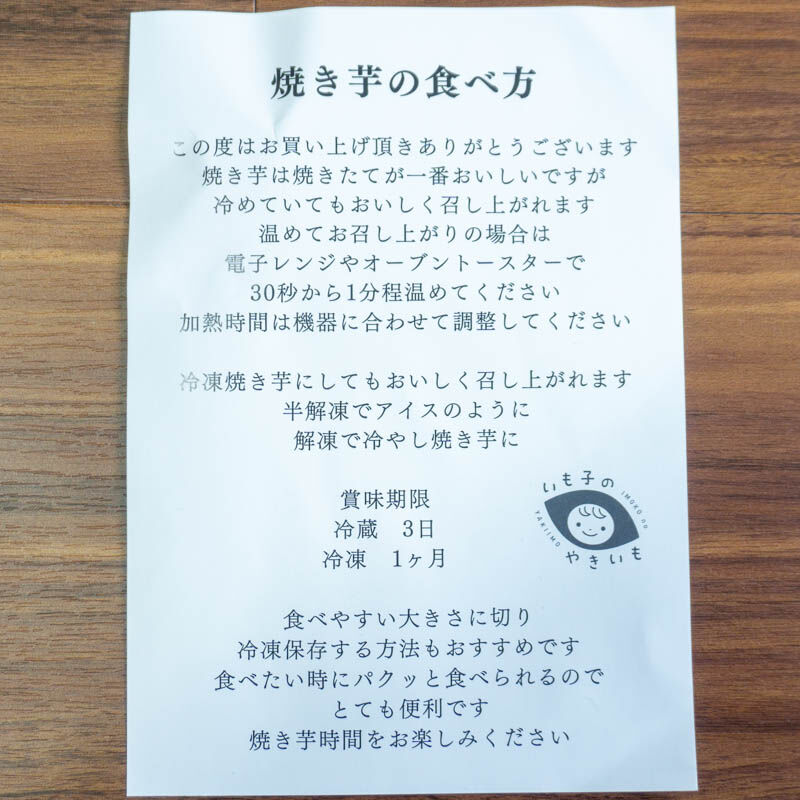 焼き芋の食べ方
この度はお買い上げ頂きありがとうございます
焼き芋は焼きたてが一番おいしいですが
冷めていてもおいしく召し上がれます
温めてお召し上がりの場合は
電子レンジやオーブントースターで
30秒から1分程温めてください
加熱時間は機器に合わせて調整してください
冷凍焼き芋にしてもおいしく召し上がれます
半解凍でアイスのように
解凍で冷やし焼き芋に
賞味期限
冷蔵　3日
冷凍　1ヶ月
いも子の
IMOKO no
YAKIIMO
やきいも
食べやすい大きさに切り
冷凍保存する方法もおすすめです
食べたい時にパクッと食べられるので
とても便利です
焼き芋時間をお楽しみください